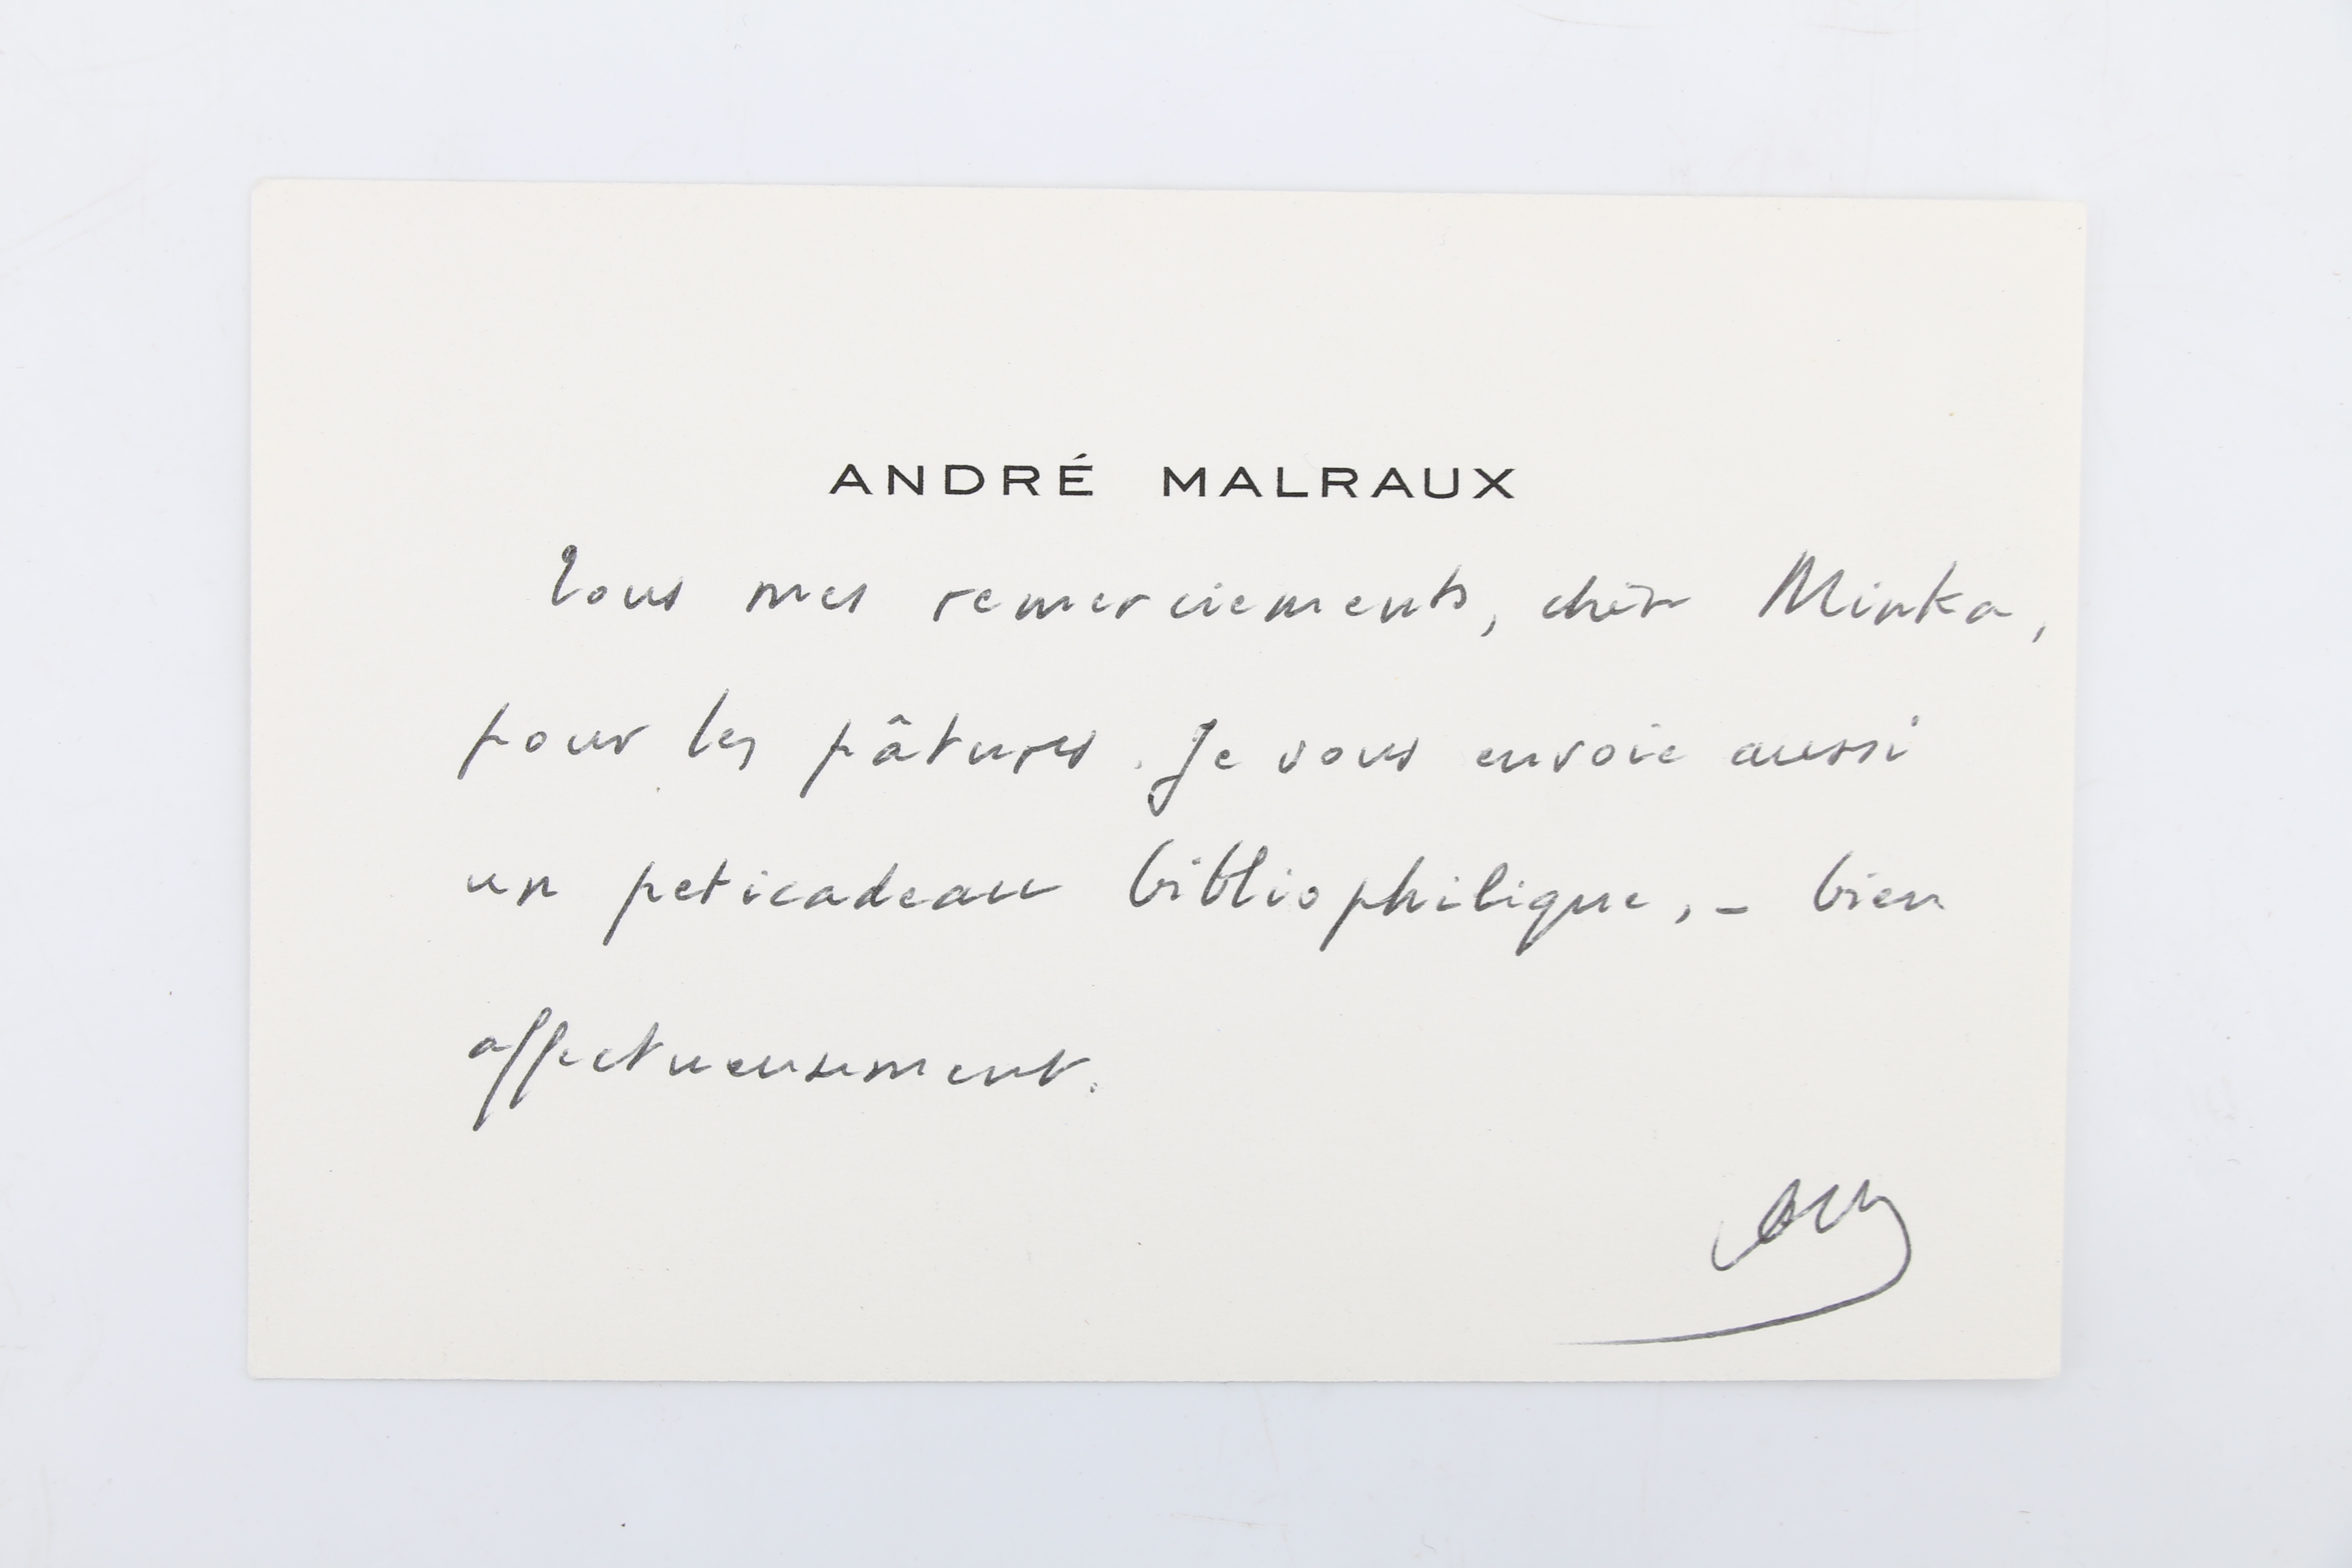 ANDRÉ MALRAUX
Tous mes remerciements, chère Minka,
pour les pâtures. Je vous envoie aussi
un peticadeau bibliophilique, – bien
affectueusement.
AM